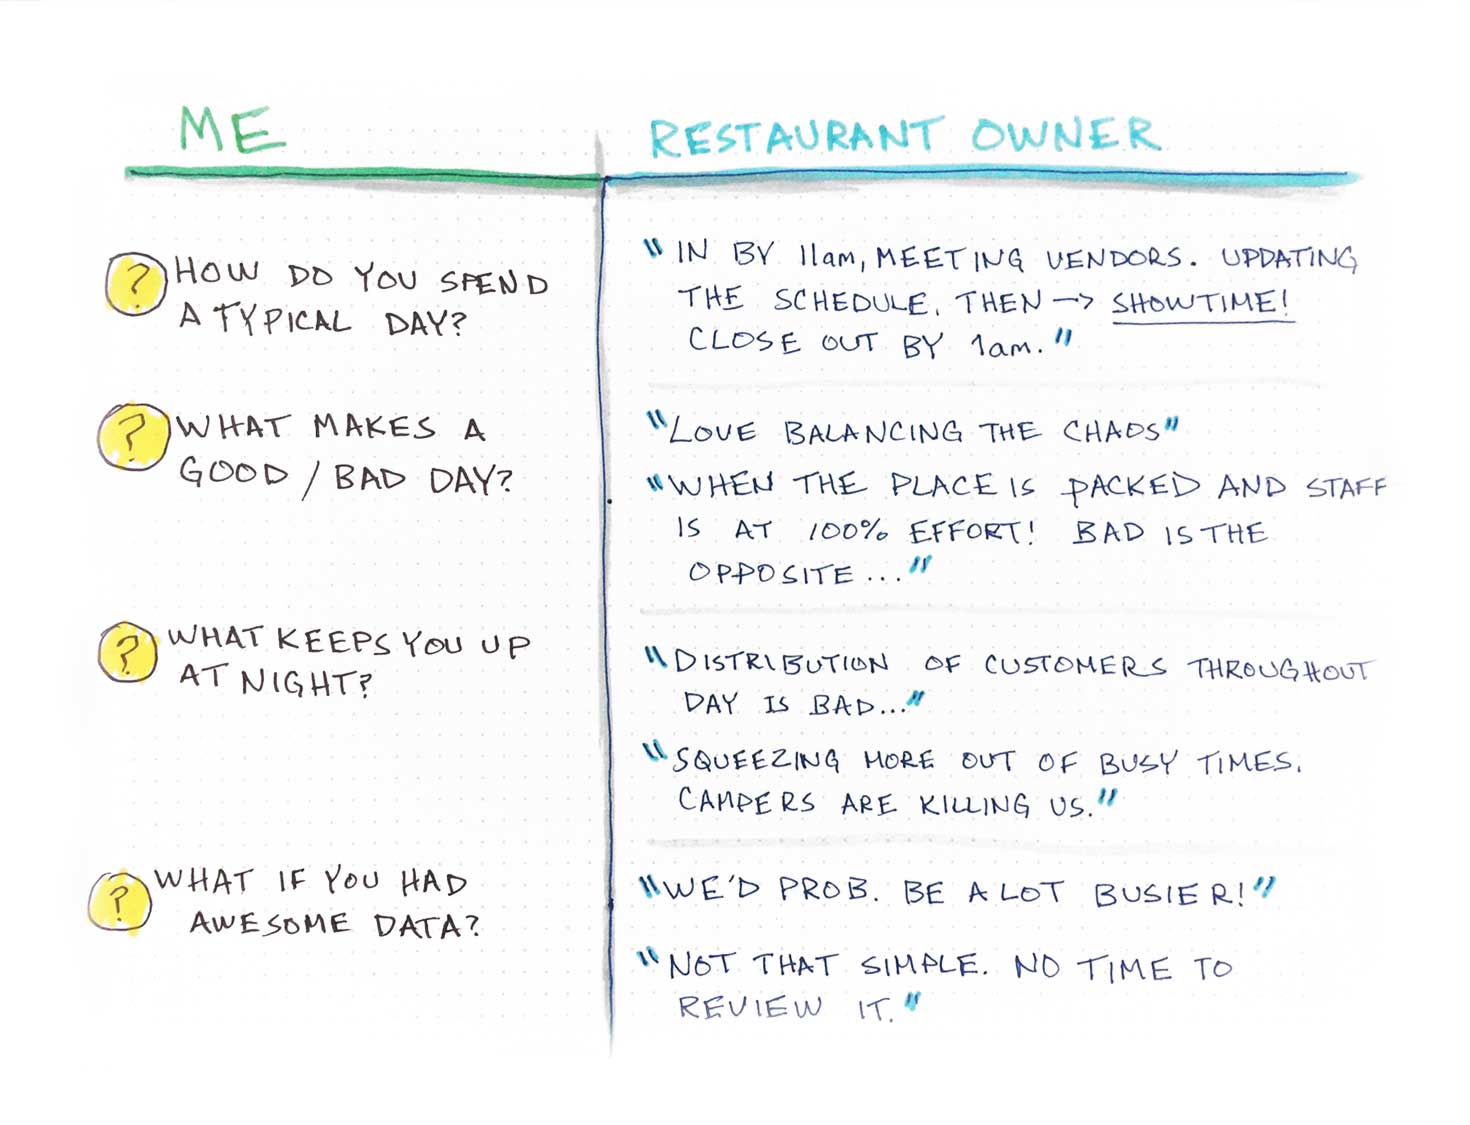 ME
RESTAURANT OWNER
? HOW DO YOU SPEND
A TYPICAL DAY?
"IN BY 11am, MEETING VENDORS. UPDATING
THE SCHEDULE. THEN → SHOWTIME!
CLOSE OUT BY 1am."
? WHAT MAKES A
GOOD / BAD DAY?
"LOVE BALANCING THE CHAOS"
"WHEN THE PLACE IS PACKED AND STAFF
IS AT 100% EFFORT! BAD IS THE
OPPOSITE..."
? WHAT KEEPS YOU UP
AT NIGHT?
"DISTRIBUTION OF CUSTOMERS THROUGHOUT
DAY IS BAD..."
"SQUEEZING MORE OUT OF BUSY TIMES.
CAMPERS ARE KILLING US."
? WHAT IF YOU HAD
AWESOME DATA?
"WE'D PROB. BE A LOT BUSIER!"
"NOT THAT SIMPLE. NO TIME TO
REVIEW IT."